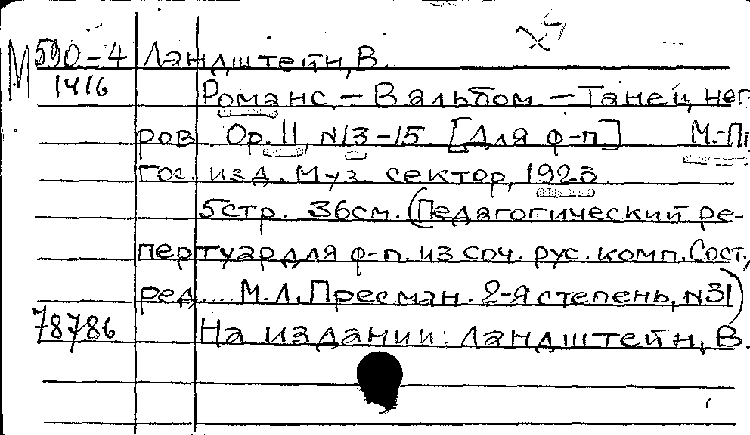 М 590-4 Ландштейн, В.
1416 Романс. – В альбом. – Танец нег-
ров. Op. 11, N 13-15. [Для ф-п.] М.-Пг
Гос. изд. Муз. сектор, 1923.
5стр. 36см. (Педагогический ре-
пертуар для ф-п. из соч. рус. комп. Сост,
ред.... М.Л. Пресман. 2-я степень, N31)
78786 На издании: Ландштейн, В.